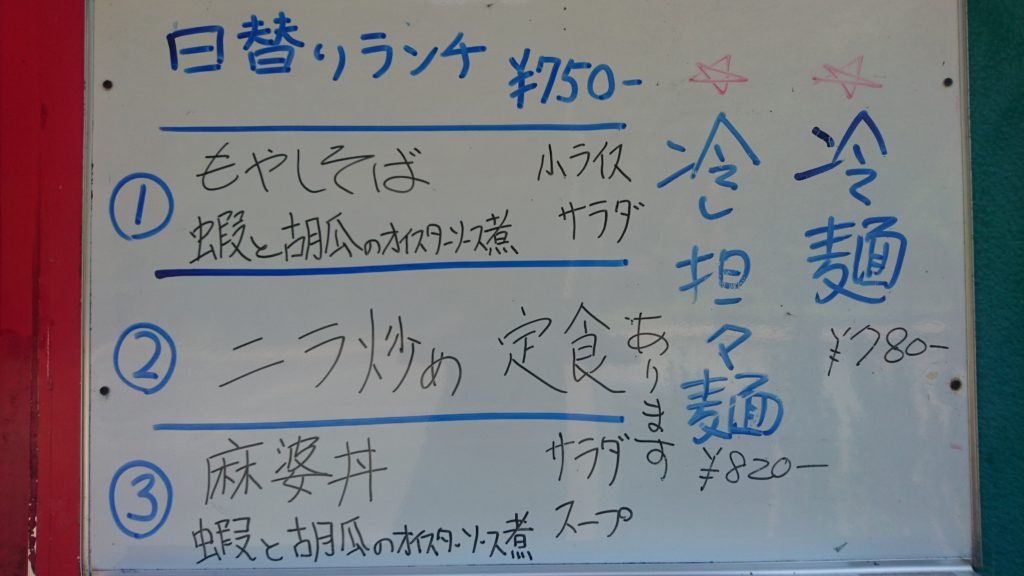 日替りランチ ¥750-
① もやしそば 小ライス
蝦と胡瓜のオイスターソース煮 サラダ
② ニラ炒め 定食
③ 麻婆丼 サラダ
蝦と胡瓜のオイスターソース煮 スープ
☆冷麺
¥780-
☆冷し担々麺
¥820-
あります